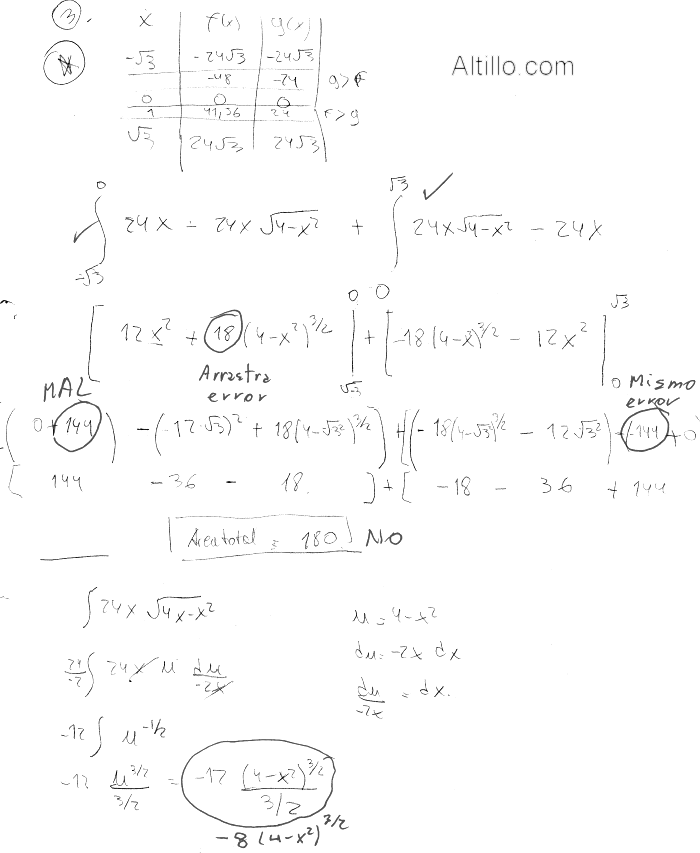 3. x f(x) g(x)
Altillo.com
-√3 -24√3 -24√3
-48 -24 g>f
0 0 0
1 41,36 24 f>g
√3 24√3 24√3
∫_{-√3}^{0} 24x - 24x √(4-x²) + ∫^{√3} 24x√(4-x²) - 24x
[12x² + 18(4-x²)^{3/2} |_{√3}^{0} + [^{0} -18(4-x)^{3/2} - 12x² |_{0}^{√3}
MAL Arrastra error Mismo error
(0+144) - (-12·√3)² + 18(4-√3²)^{3/2}) + [(-18(4-√3²)^{3/2} - 12√3²) - (-144+0)
[144 - 36 - 18. ] + [ -18 - 36 + 144
Area total = 180 NO
∫24x √(4x-x²) u = 4-x²
24/-2 ∫ 24x u du/-2x du = -2x dx
du/-2x = dx.
-12 ∫ u^{-1/2}
-12 u^{3/2}/3/2 = -12 (4-x²)^{3/2}/3/2
-8(4-x²)^{3/2}